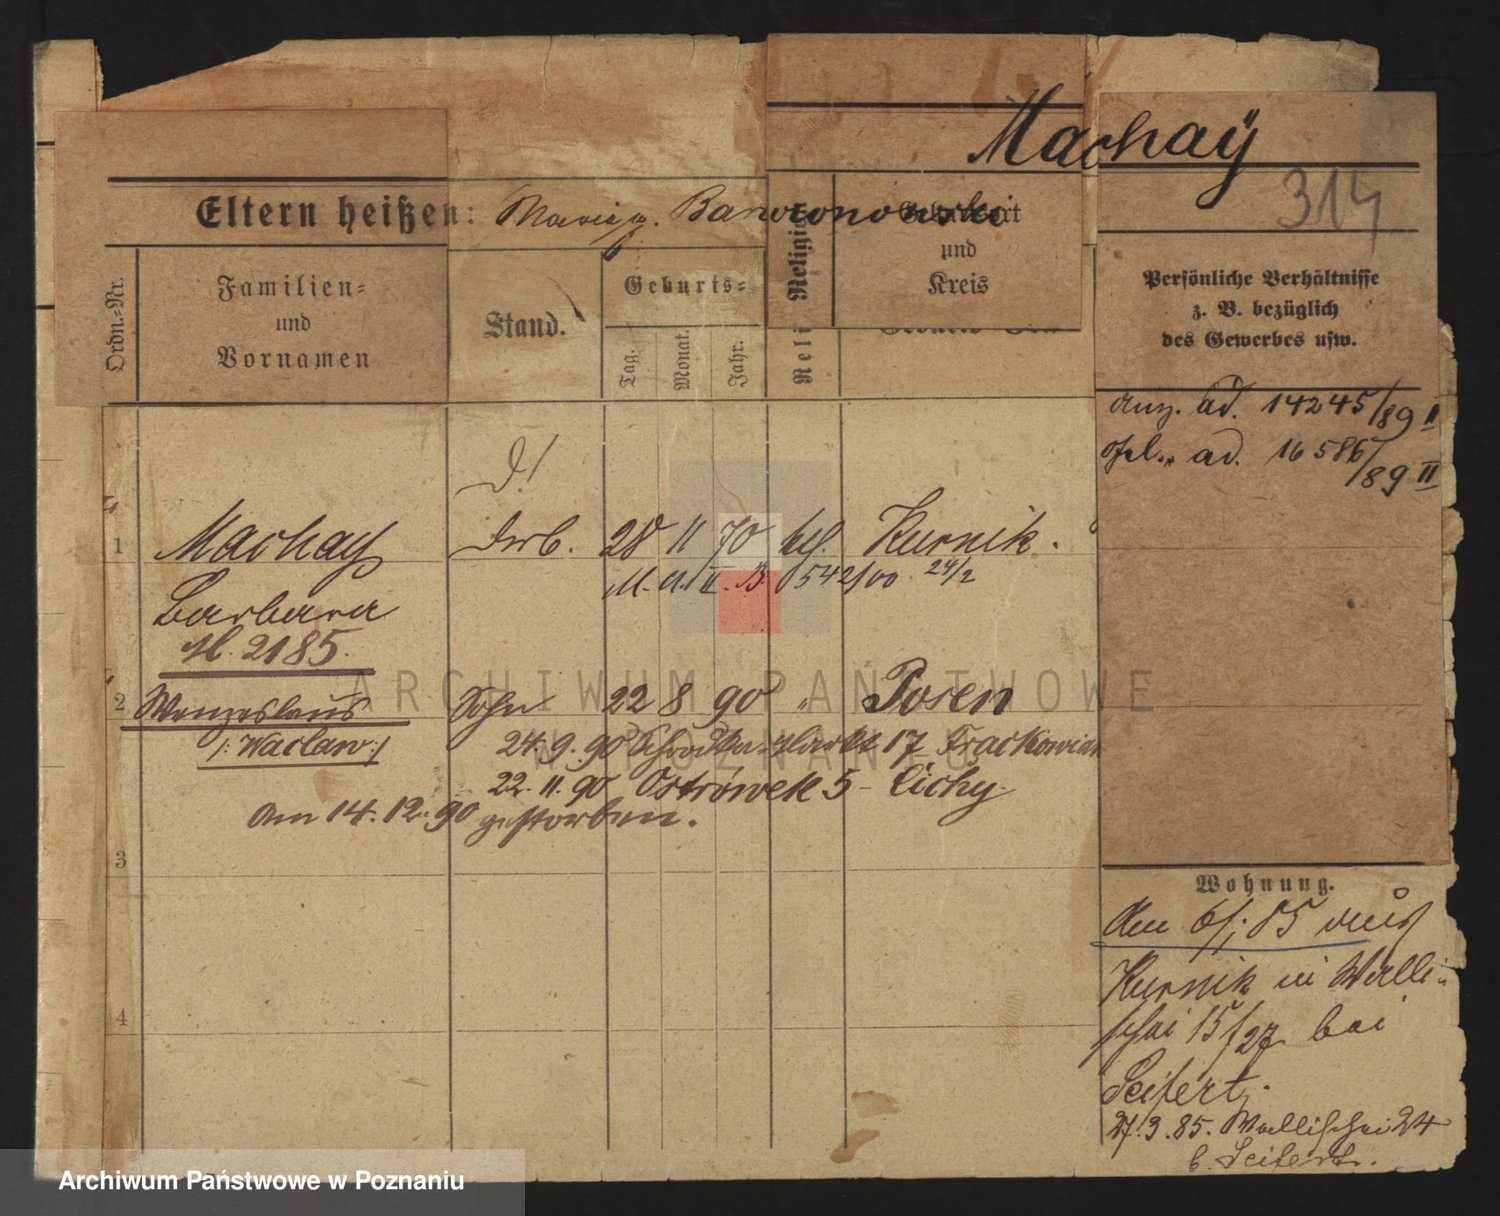 Machaÿ
314
Eltern heißen:
Ordn.-Nr.
Familien-
und
Vornamen
Stand.
Geburts-
Tag.
Monat.
Jahr.
Religion
und
Kreis
Persönliche Verhältnisse
z. B. bezüglich
des Gewerbes usw.
ad. 14245/89 II
ad. 16586/89 II
1 Machay 28 11 70 Kurnik.
542/00 24/2
Barbara
2185.
2 Wenzeslaus Sohn 22 8 90 " Posen
/: Waclaw :/
24. 9. 90 17
22. 11. 90 Ostrówek 5 - Cichy
Am 14. 12. 90 gestorben.
3
4
Wohnung.
Kurnik in Walli-
schei 15/27 bei
Seifert.
27. 3. 85. Wallischei 24
b. Seifert.
ARCHIWUM PAŃSTWOWE
W POZNANIU
Archiwum Państwowe w Poznaniu